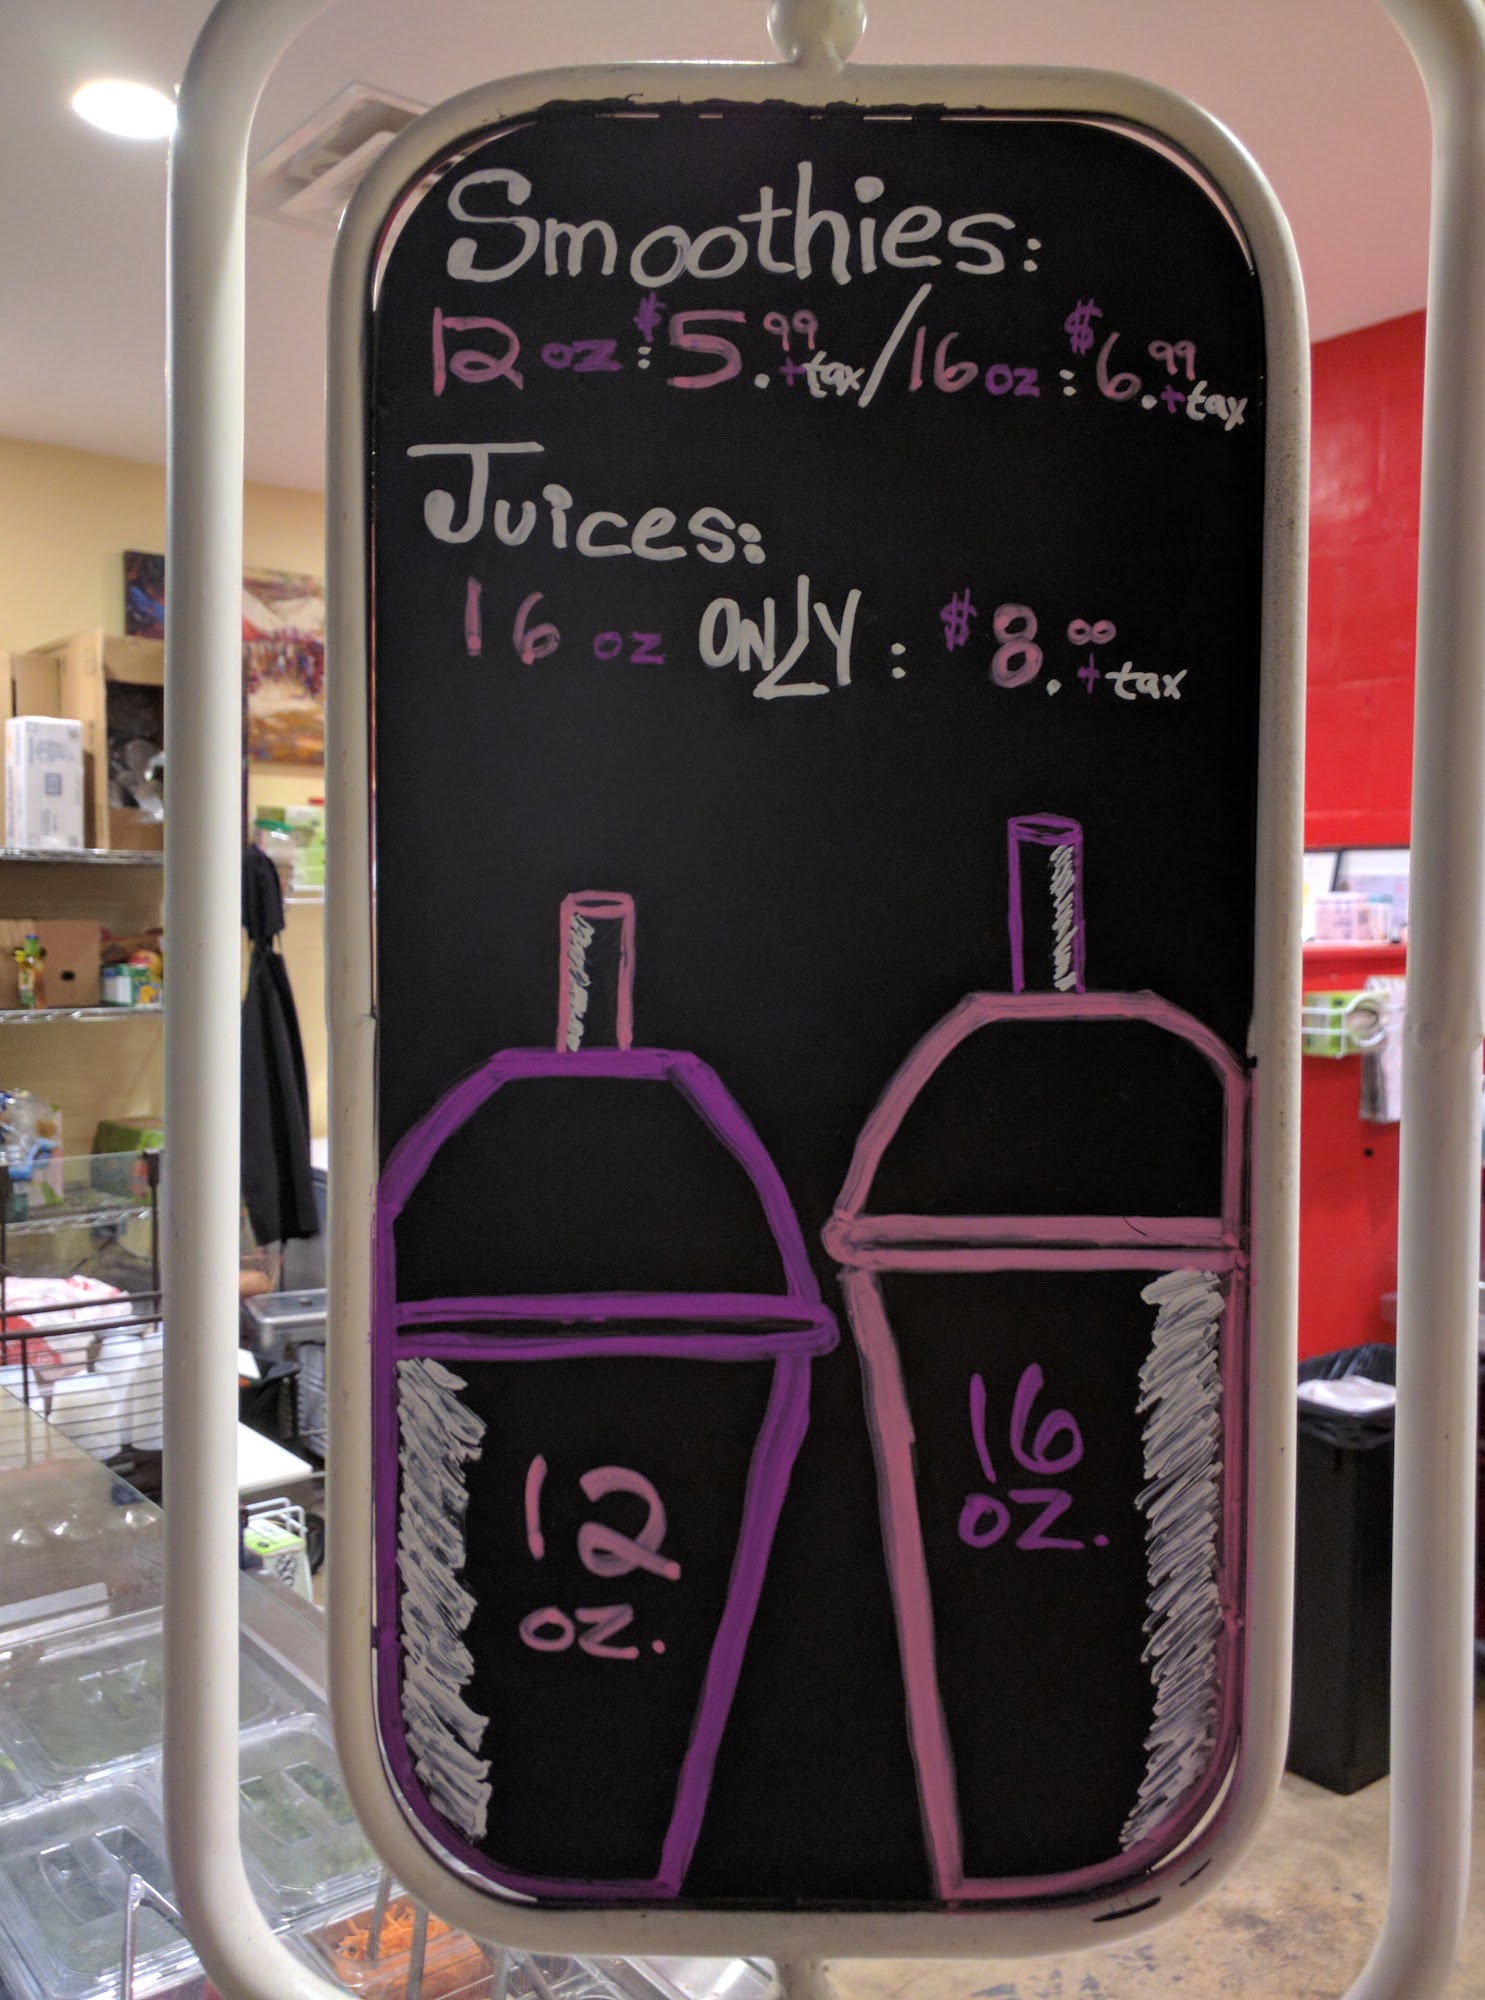 Smoothies:
12 oz: $5.99 + tax / 16 oz: $6.99 + tax
Juices:
16 oz ONLY: $8.00 + tax
12
oz.
16
oz.